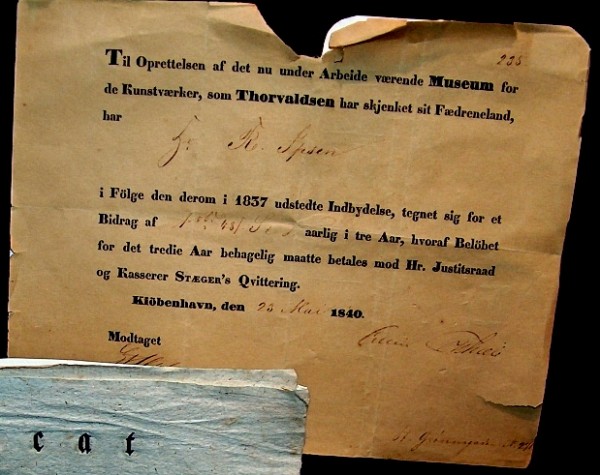 235
Til Oprettelsen af det nu under Arbeide værende Museum for
de Kunstværker, som Thorvaldsen har skjenket sit Fædreneland,
har
Hr. R. Ipsen
i Fölge den derom i 1837 udstedte Indbydelse, tegnet sig for et
Bidrag af aarlig i tre Aar, hvoraf Belöbet
for det tredie Aar behagelig maatte betales mod Hr. Justitsraad
og Kasserer STÆGER's Qvittering.
Kiöbenhavn, den 23 Mai 1840.
Modtaget
cat